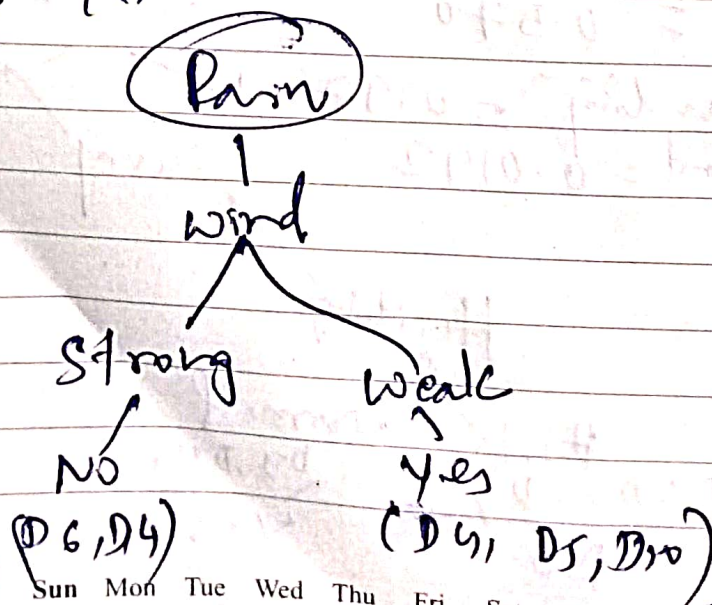 Rain
wind
Strong Weak
NO Yes
(D6, D14) (D4, D5, D10)
Sun Mon Tue Wed Thu Fri S